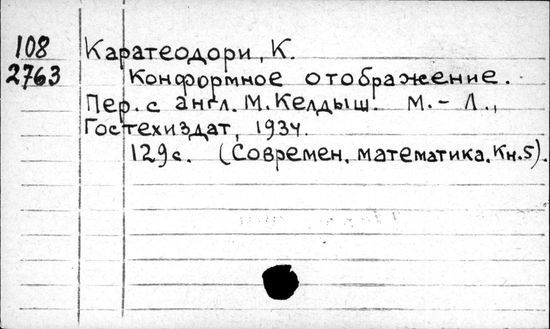 108
2763
Каратеодори, К.
Конформное отображение.
Пер. с англ. М. Келдыш. М.-Л.,
Гостехиздат, 1934.
129с. (Современ. математика. Кн.5).